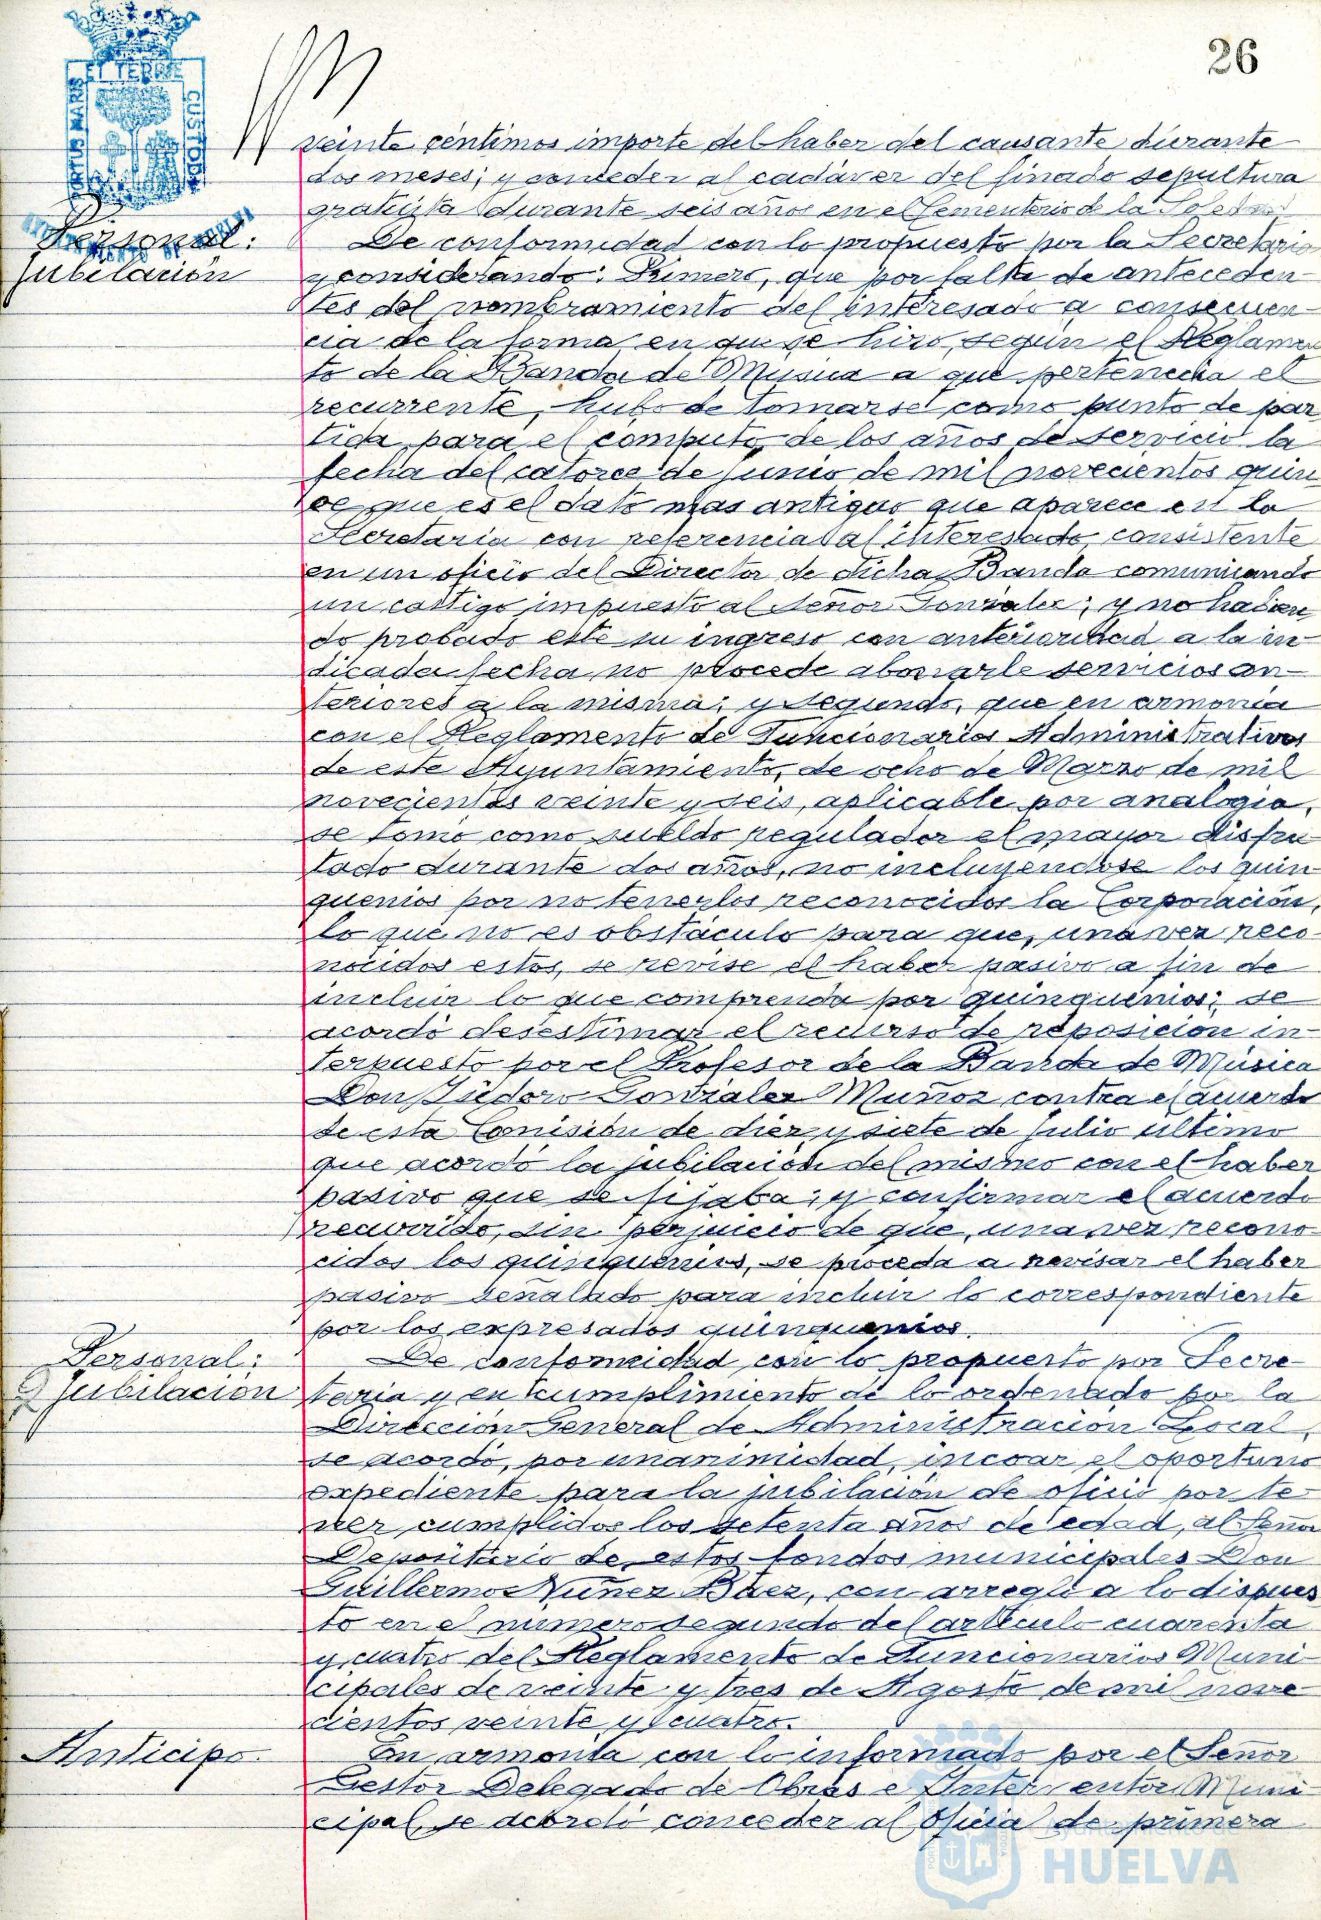 26
PORTUS MARIS ET TERRE CUSTODIA
AYUNTAMIENTO DE HUELVA
veinte céntimos importe del haber del causante durante
dos meses; y conceder al cadáver del finado sepultura
gratuita durante seis años en el Cementerio de la Soledad
Personal:
Jubilación
De conformidad con lo propuesto por la Secretaria
y considerando: Primero, que por falta de anteceden-
tes del nombramiento del interesado a consecuen-
cia de la forma en que se hizo, según el Reglamen
to de la Banda de Música a que pertenecia el
recurrente, hubo de tomarse como punto de par
tida para el cómputo de los años de servicio la
fecha del catorce de junio de mil novecientos quin-
ce que es el dato mas antiguo que aparece en la
Secretaria con referencia al interesado, consistente
en un oficio del Director de dicha Banda comunicando
un castigo impuesto al Señor Gonzalez; y no habien
do probado este su ingreso con anterioridad a la in-
dicada fecha no procede abonarle servicios an-
teriores a la misma; y segundo, que en armonía
con el Reglamento de Funcionarios Administrativos
de este Ayuntamiento, de ocho de Marzo de mil
novecientos veinte y seis, aplicable por analogia,
se tomó como sueldo regulador el mayor disfru-
tado durante dos años, no incluyendose los quin-
quenios por no tenerlos reconocidos la Corporación,
lo que no es obstáculo para que, una vez reco-
nocidos estos, se revise el haber pasivo a fin de
incluir lo que comprenda por quinquenios; se
acordó desestimar el recurso de reposición in-
terpuesto por el Profesor de la Banda de Música
Don Isidoro Gonzalez Muñoz contra el acuerdo
de esta Comisión de diez y siete de julio último
que acordó la jubilación del mismo con el haber
pasivo que se fijaba; y confirmar el acuerdo
recurrido, sin perjuicio de que, una vez recono-
cidos los quinquenios, se proceda a revisar el haber
pasivo señalado para incluir lo correspondiente
por los expresados quinquenios.
Personal:
Jubilación
De conformidad con lo propuesto por Secre-
taria y en cumplimiento de lo ordenado por la
Dirección General de Administración Local,
se acordó, por unanimidad, incoar el oportuno
expediente para la jubilación de oficio por te-
ner cumplidos los setenta años de edad, al Señor
Depositario de estos fondos municipales Don
Guillermo Nuñez Báez, con arreglo a lo dispues
to en el número segundo del artículo cuarenta
y cuatro del Reglamento de Funcionarios Muni-
cipales de veinte y tres de Agosto de mil nove-
cientos veinte y cuatro.
Anticipo.
En armonía con lo informado por el Señor
Gestor Delegado de Obras e Interventor Muni-
cipal, se acordó conceder al Oficial de primera
Ayuntamiento de
HUELVA